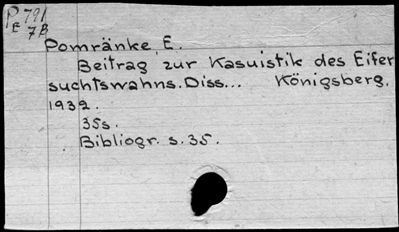 P 791
E 7B
Pomränke, E.
Beitrag zur Kasuistik des Eifer
suchtswahns. Diss... Königsberg,
1932.
35s.
Bibliogr. s. 35.